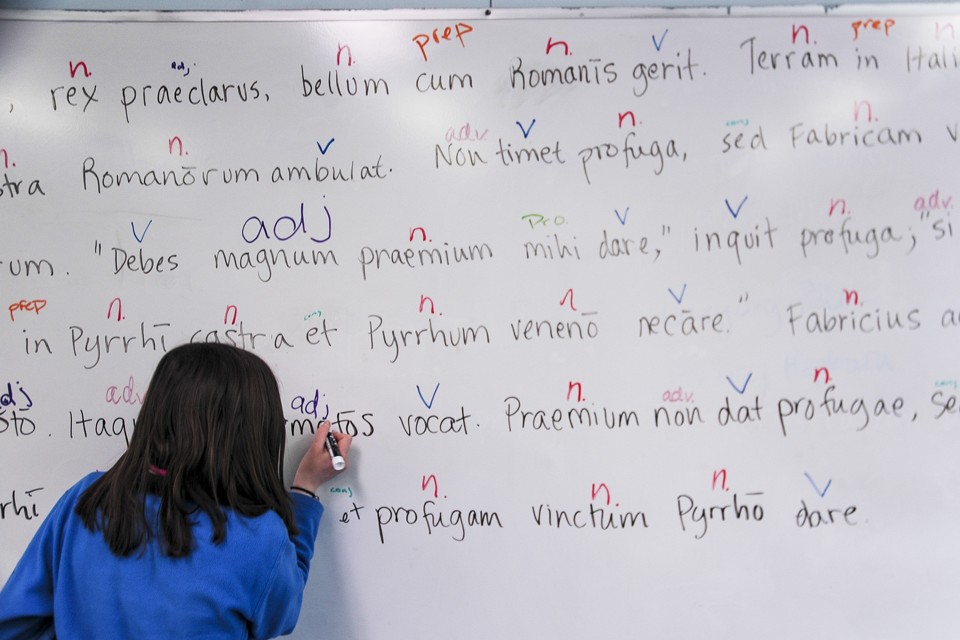 n. adj n. prep n. V n. prep n
, rex praeclarus, bellum cum Romanīs gerit. Terram in Itali
n. n. V adv. V n. conj n.
stra Romanōrum ambulat. Non timet profuga, sed Fabricam v
V adj n. Pro. V V n. adv.
rum. "Debes magnum praemium mihi dare," inquit profuga; "si
prep n. n. conj n. n V n.
in Pyrrhī castra et Pyrrhum venenō necāre." Fabricius a
dj adv adj V n. adv. V n. conj
stō. Itaq mātōs vocat. Praemium non dat profugae, se
conj n. n. n. V
rhī et profugam vinctum Pyrrhō dare.